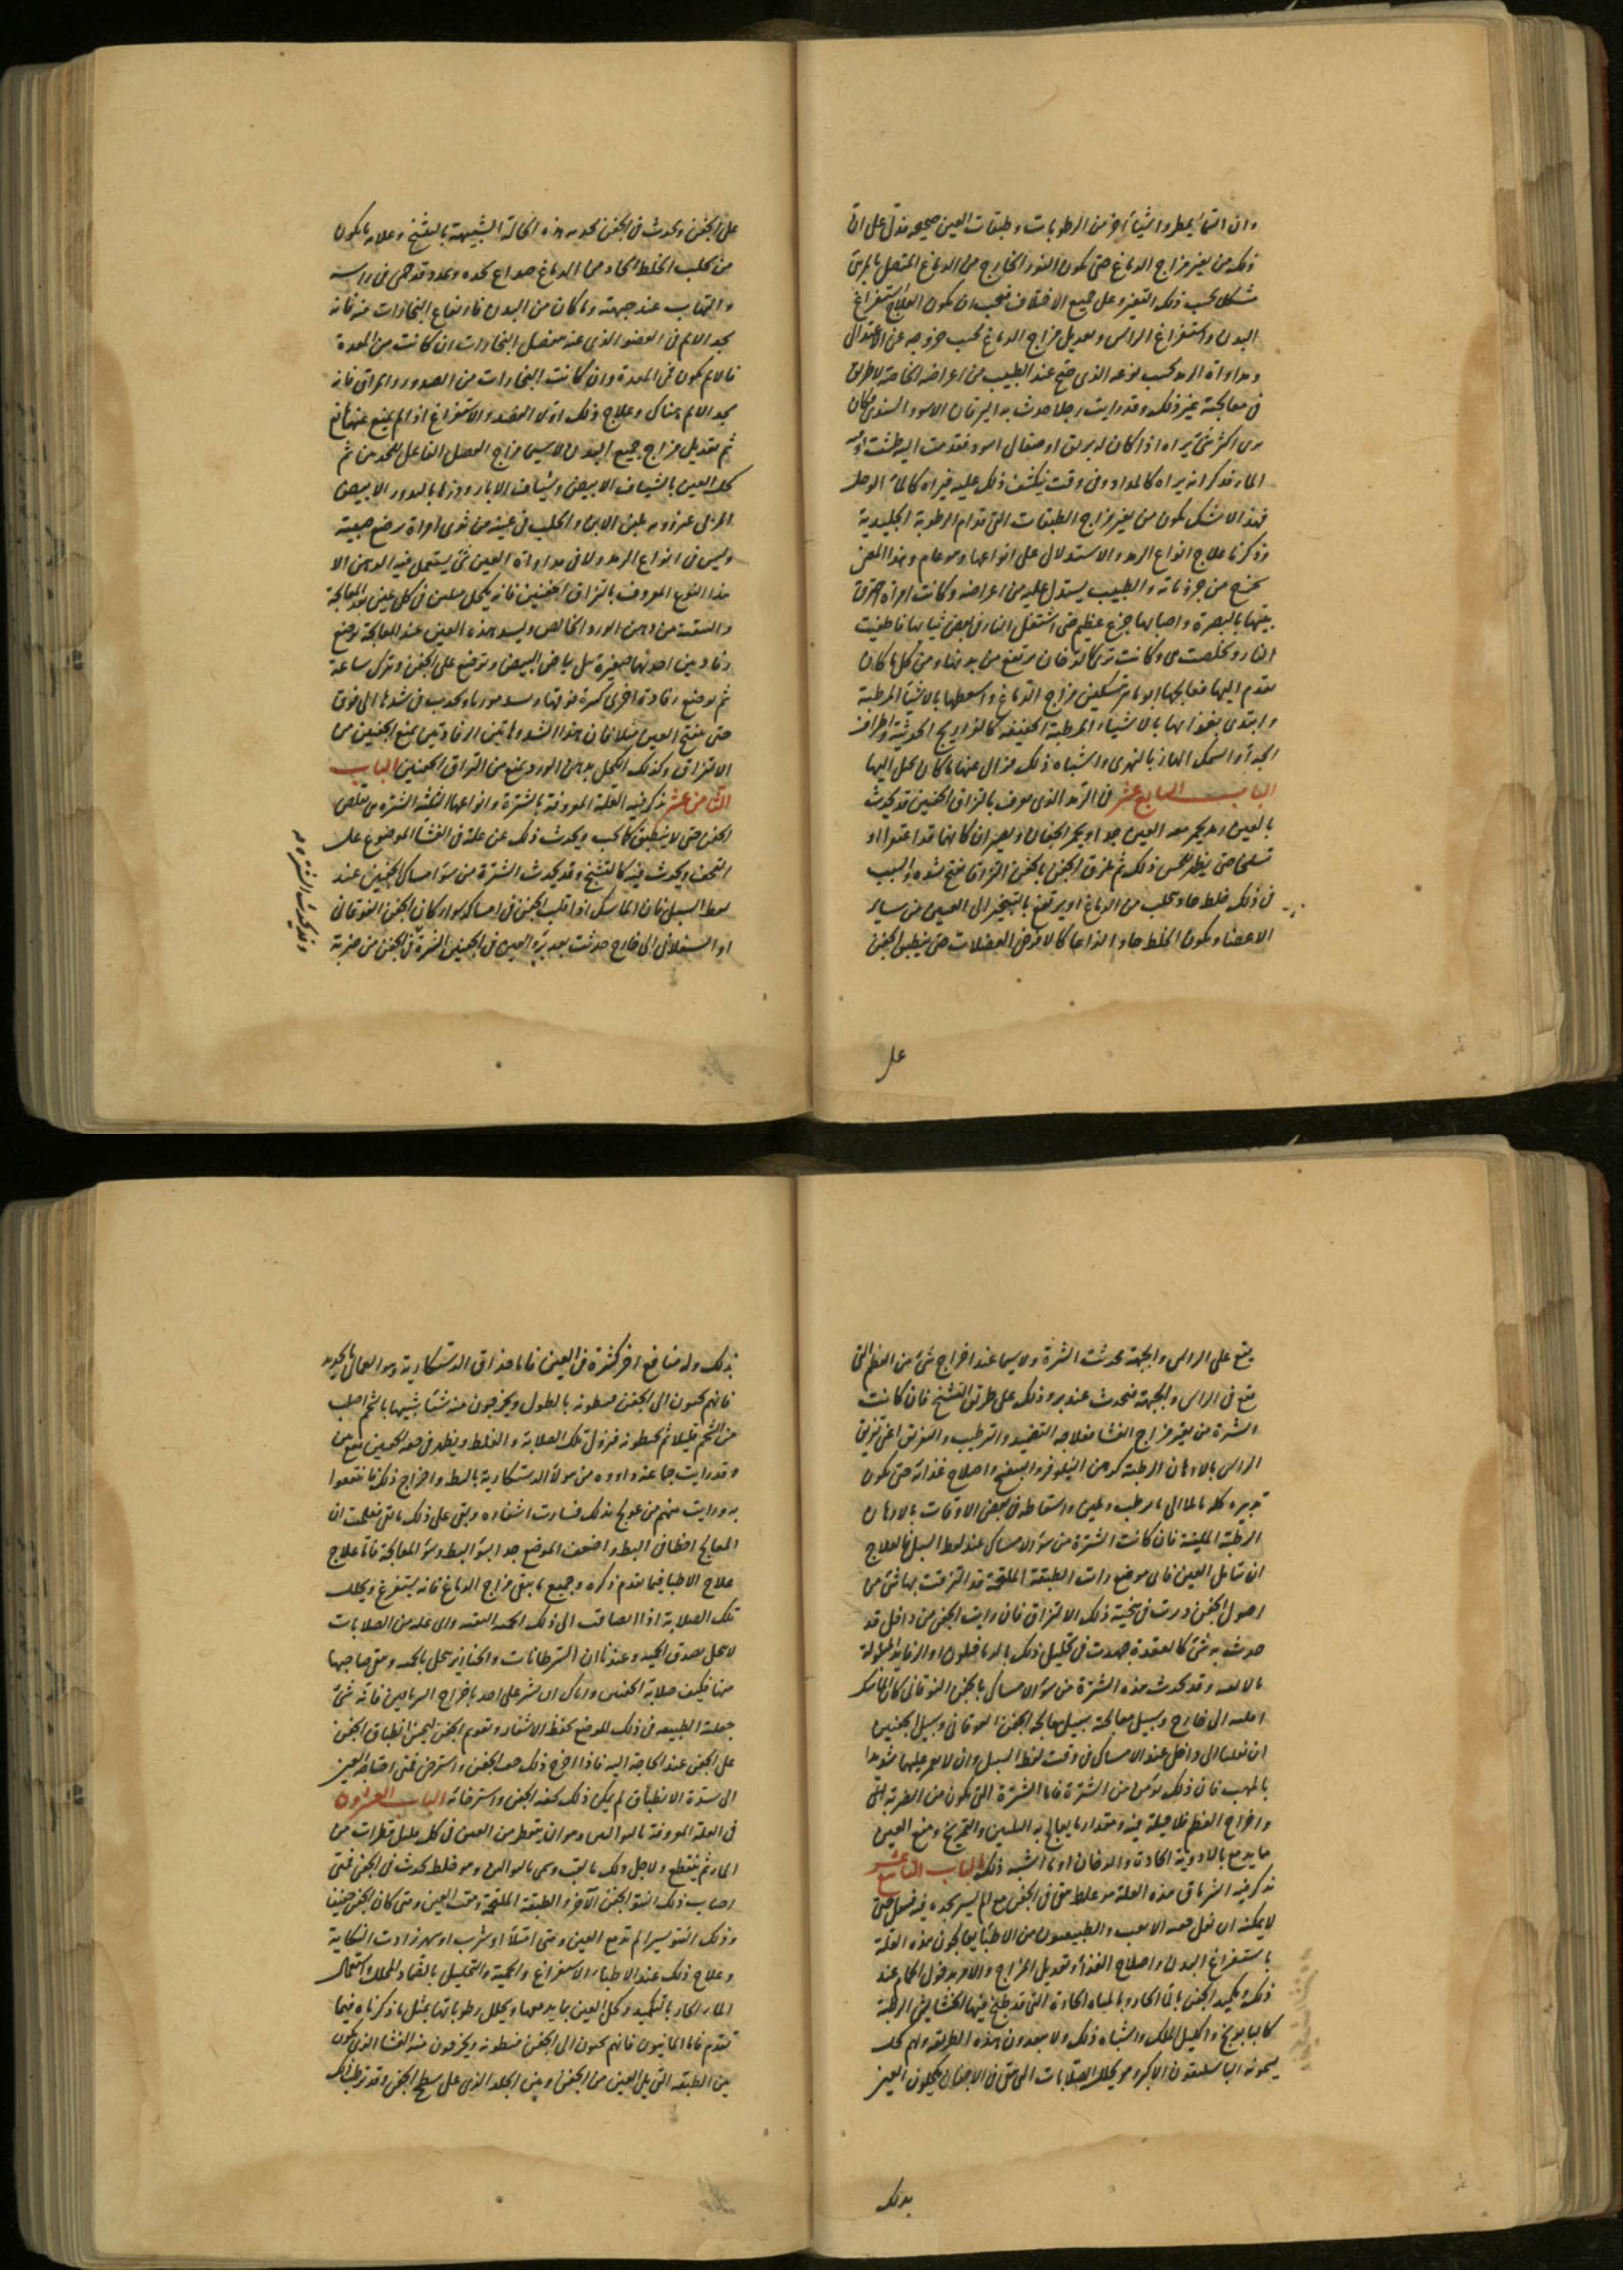 وان التما يمطر واشياء اخر من الرطوبات وطبقات العين صحيحه فدل على ان
ذلك من تغير مزاج الدماغ حتى يكون النور الخارج من الدماغ المتصل بالمرئ
مشكل بحسب ذلك التغير وعلى جميع الاختلاف فيجب ان يكون العلاج استفراغ
البدن واستفراغ الراس وتعديل مزاج الدماغ بحسب خروجه عن الاعتدال
ومداواة الرمد بحسب نوعه الذى صح عند الطبيب من اعراضه الخاصة لا طريق
فى معالجته غير ذلك وقد رايت رجلا حدث به اليرقان الاسود السندى فكان
يرى اكثر شئ يراه اذا كان له بريق او صقال اسود فقدمت اليه طشت
الماء فذكر انه يراه كالمداد وفى وقت ينكشف ذلك عليه فيراه كالماء الوحل
فهذا لا شك يكون من تغير مزاج الطبقات التى قدام الرطوبة الجليدية
وذكرنا علاج انواع الرمد والاستدلال على انواعها وهو عام وهذا المعنى
يخرج من جزوياته والطبيب يستدل عليه من اعراضه وكانت امراة احترق
بيتها بالبصرة واصابها جزع عظيم حتى اشتعل النار فى بعض ثيابها فاطفيت
النار وتخلصت هى وكانت ترى كالدخان يرتفع من بدنها ومن كل ما كان
يقدم اليها فعالجها ابو ماهر بتسكين مزاج الدماغ واسعطها بالاشياء المرطبة
وابتدى بغذائها بالاشياء المرطبة الخفيفة كالفراريج الحديثة واطراف
الجداء والسمك الهازبا النهرى واشباه ذلك فزال عنها ما كان يخيل اليها
الباب السابع عشر فى الرمد الذى يعرف بالتزاق الجفنين قد يحدث
بالعين رمد يحمر معه العين جدا ويحمر الجفنان ويصيران كانهما قد
حتى يظهر للحس ذلك ثم يلزق الجفن بالجفن التزاقا يفتح بشدة والسبب
فى ذلك خلط حاد يتحلب من الدماغ او يرتفع بالتبخير الى العين من ساير
الاعضاء ويكون الخلط حادا لذاعا كالا فرض العضلات حتى ينطبق الجفن
على
على الجفن ويحدث فى الجفن بحدوث هذه الحالة الشبيهة بالتشنج وعلامة ما يكون
من تحلب الخلط الحاد من الدماغ صداع يجده وتمدد وقد حمى فى راسه
والتهاب عند جبهته وما كان من البدن فارتفاع البخارات منه فانه
يجد الالم فى العضو الذى عنه تنفصل البخارات ان كانت من المعدة
فالالم يكون فى المعدة وان كانت البخارات من الصدر والمراق فانه
يجد الالم هناك وعلاج ذلك اولا الفصد والاستفراغ اذا لم يمنع عنهما مانع
ثم تعديل مزاج جميع البدن لاسيما مزاج العضل الفاعل للحدث ثم
كحل العين بالشياف الابيض وشياف الابار وذرها بالذرور الابيض
المربى عنزروته بلبن الاتن والحلب فى عينه من ثدى امراة ترضع صبية
وليس فى انواع الرمد ولا فى مداواة العين شئ يستعمل فيه الدهن الا
هذا النوع المعروف بالتزاق الجفنين فانه يكحل ميلين فى كل عين بعد المعالجة
والتنقية من دهن الورد الخالص وليشد هذه العين عند المعالجة توضع
رفادتين احديهما صغيرة تبل ببياض البيض وتوضع على الجفن وتترك ساعة
ثم توضع رفادة اخرى كبيرة فوقها ويجذب فى شدها الى فوق
حتى تفتح العين قليلا فان هذا الشد وهاتين الرفادتين تمنع الجفنين من
الالتزاق وكذلك الكحل بدهن الورد يمنع من التزاق الجفنين الباب
الثامن عشر نذكر فيه العلة المعروفة بالشترة وانواعها الثلثة الشترة هى تقلص
الجفن حتى لا ينطبق كما يجب ويحدث ذلك عن علة فى الغشاء الموضوع على
القحف ويحدث فيه كالتشنج وقد يحدث الشترة من سوء امساك الجفنين عند
لقط السبل فان الماسك اذا قلب الجفن فى امساكه سواء كان الجفن الفوقانى
او السفلانى الى خارج حدثت بعد برء العين فى الجفنين الشترة فى الجفن من ضربة
وقد يحدث الشترة
يقع على الراس والجبهة يحدث الشترة ولا سيما عند اخراج شئ من العظم التى
يقع فى الراس والجبهة فيحدث عند برءه وذلك على طريق التشنج فان كانت
الشترة من تغير مزاج الغشاء فعلاجه التضميد والترطيب والتغريق اعنى تغريق
الراس بالادهان الرطبة كدهن النيلوفر والبنفسج واصلاح غذائه حتى يكون
تدبيره كله مائلا الى ما يرطب ويلين واسعاطه فى بعض الاوقات بالادهان
الرطبة الملينة فان كانت الشترة من سوء الامساك عند لقط السبل فالعلاج
ان تتامل العين فاى موضع رايت الطبقة الملتحمة قد التزقت بها شئ من
اصول الجفن دبرت فى تنحية ذلك الالتزاق فان رايت الجفن من داخل قد
حدث به شئ كالعقدة جهدت فى تحليل ذلك بالدياخيلون او الرفايد المبلولة
وقد يحدث هذه الشترة من سوء الامساك بالجفن الفوقانى كان الماسك
اقلبه الى خارج وسبيل معالجته سبيل معالجة الجفن الفوقانى وسبيل الجفنين
ان تقلبا الى داخل عند الامساك فى وقت لقط السبل وان لا شديدا
فان ذلك يؤمن من الشترة فاما الشترة التى يكون من الضربة التى
واخراج العظم فلا حيلة فيه ومقدار ما يعالج به التليين والتمريخ ومنع العين
ما يدمع بالادوية الحادة والدخان او ما اشبه ذلك الباب التاسع عشر
نذكر فيه الشرناق هذه العلة هو غلظ يبقى فى الجفن مع الم يسير يجده فيه فيثقل حتى
لا يمكنه ان يقل جفنه الا بتعب والطبيعيون من الاطباء يعالجون هذه العلة
باستفراغ البدن واصلاح الغذاء وتعديل المزاج والامر بدخول الحمام عند
ذلك وتكميد الجفن بالماء الحار وبالمياه الحادة التى قد طبخ فيها الحشايش الرطبة
كالبابونج واكليل الملك واشباه ذلك ولا يتعدون هذه الطريقة ولهم كحل
يسمونه الباسليقون الاكبر وهو يحلل الصلابات التى تبقى فى الاجفان يكحلون العين
بذلك
بذلك وله منافع اخر كثيرة فى العين فاما حذاق الدستكارية وهو العمال بالحديد
فانهم يجيئون الى الجفن فيبطونه بالطول ويخرجون منه شيئا شبيها بالشحم اصلب
من الشحم قليلا ثم يخيطونه فيزول تلك الصلابة والغلظ ويظهر خفة
وقد رايت جماعة داووه من هؤلاء الدستكارية بالبط واخراج ذلك فانتفعوا
به ورايت منهم من عولج بذلك فسارت اشفاره وبقى على ذلك ما بقى فعلمت ان
المعالج اخطا فى البط واضعف الموضع جدا بسوء البط وسوء المعالجة فاما علاج
علاج الاطباء فيما تقدم ذكره وجميع ما ينقى مزاج الدماغ فانه يستفرغ ويحلل
تلك الصلابة اذا انضافت الى ذلك الحمية من الصلابات
وعندنا ان السرطانات والخنازير يتحلل بالحمية ومتى صاحبها
منها فكيف صلابة الجفنين واياك ان تشير على احد باخراج الشرناق فانه شئ
جعلته الطبيعة فى ذلك الموضع لحفظ الاشفار وتقويم الجفن ليحسن انطباق الجفن
على الجفن عند الحاجة اليه فاذا اخرج ذلك ضعف الجفن واسترخى فمتى احتاجت العين
الى شدة الانطباق لم يكن ذلك لضعف الجفن واسترخائه الباب العشرون
فى العلة المعروفة وهو ان يتقطر من العين فى كل قليل قطرات من
الماء ثم ينقطع ولاجل ذلك وهو خلط يحدث فى الجفن فمتى
اصاب ذلك النتو الجفن الاخر والطبقة الملتحمة دمعت العين ومتى كان الجفن خفيفا
وذلك النتو يسيرا لم تدمع العين ومتى امتلأ او شرب او سهر زادت النكاية
وعلاج ذلك عند الاطباء الاستفراغ والحمية والتحليل بالضماد المحلل واستعمال
الماء الحار بالتكميد وكحل العين بما يدمعها ويحلل رطوباتها بمثل ما ذكرناه فيما
تقدم فاما اليمانيون فانهم يجيئون الى الجفن فيبطونه ويخرجون منه الغشاء الذى يكون
بين الطبقة التى تلى العين من الجفن وبين الجلد الذى على سطح الجفن وقد